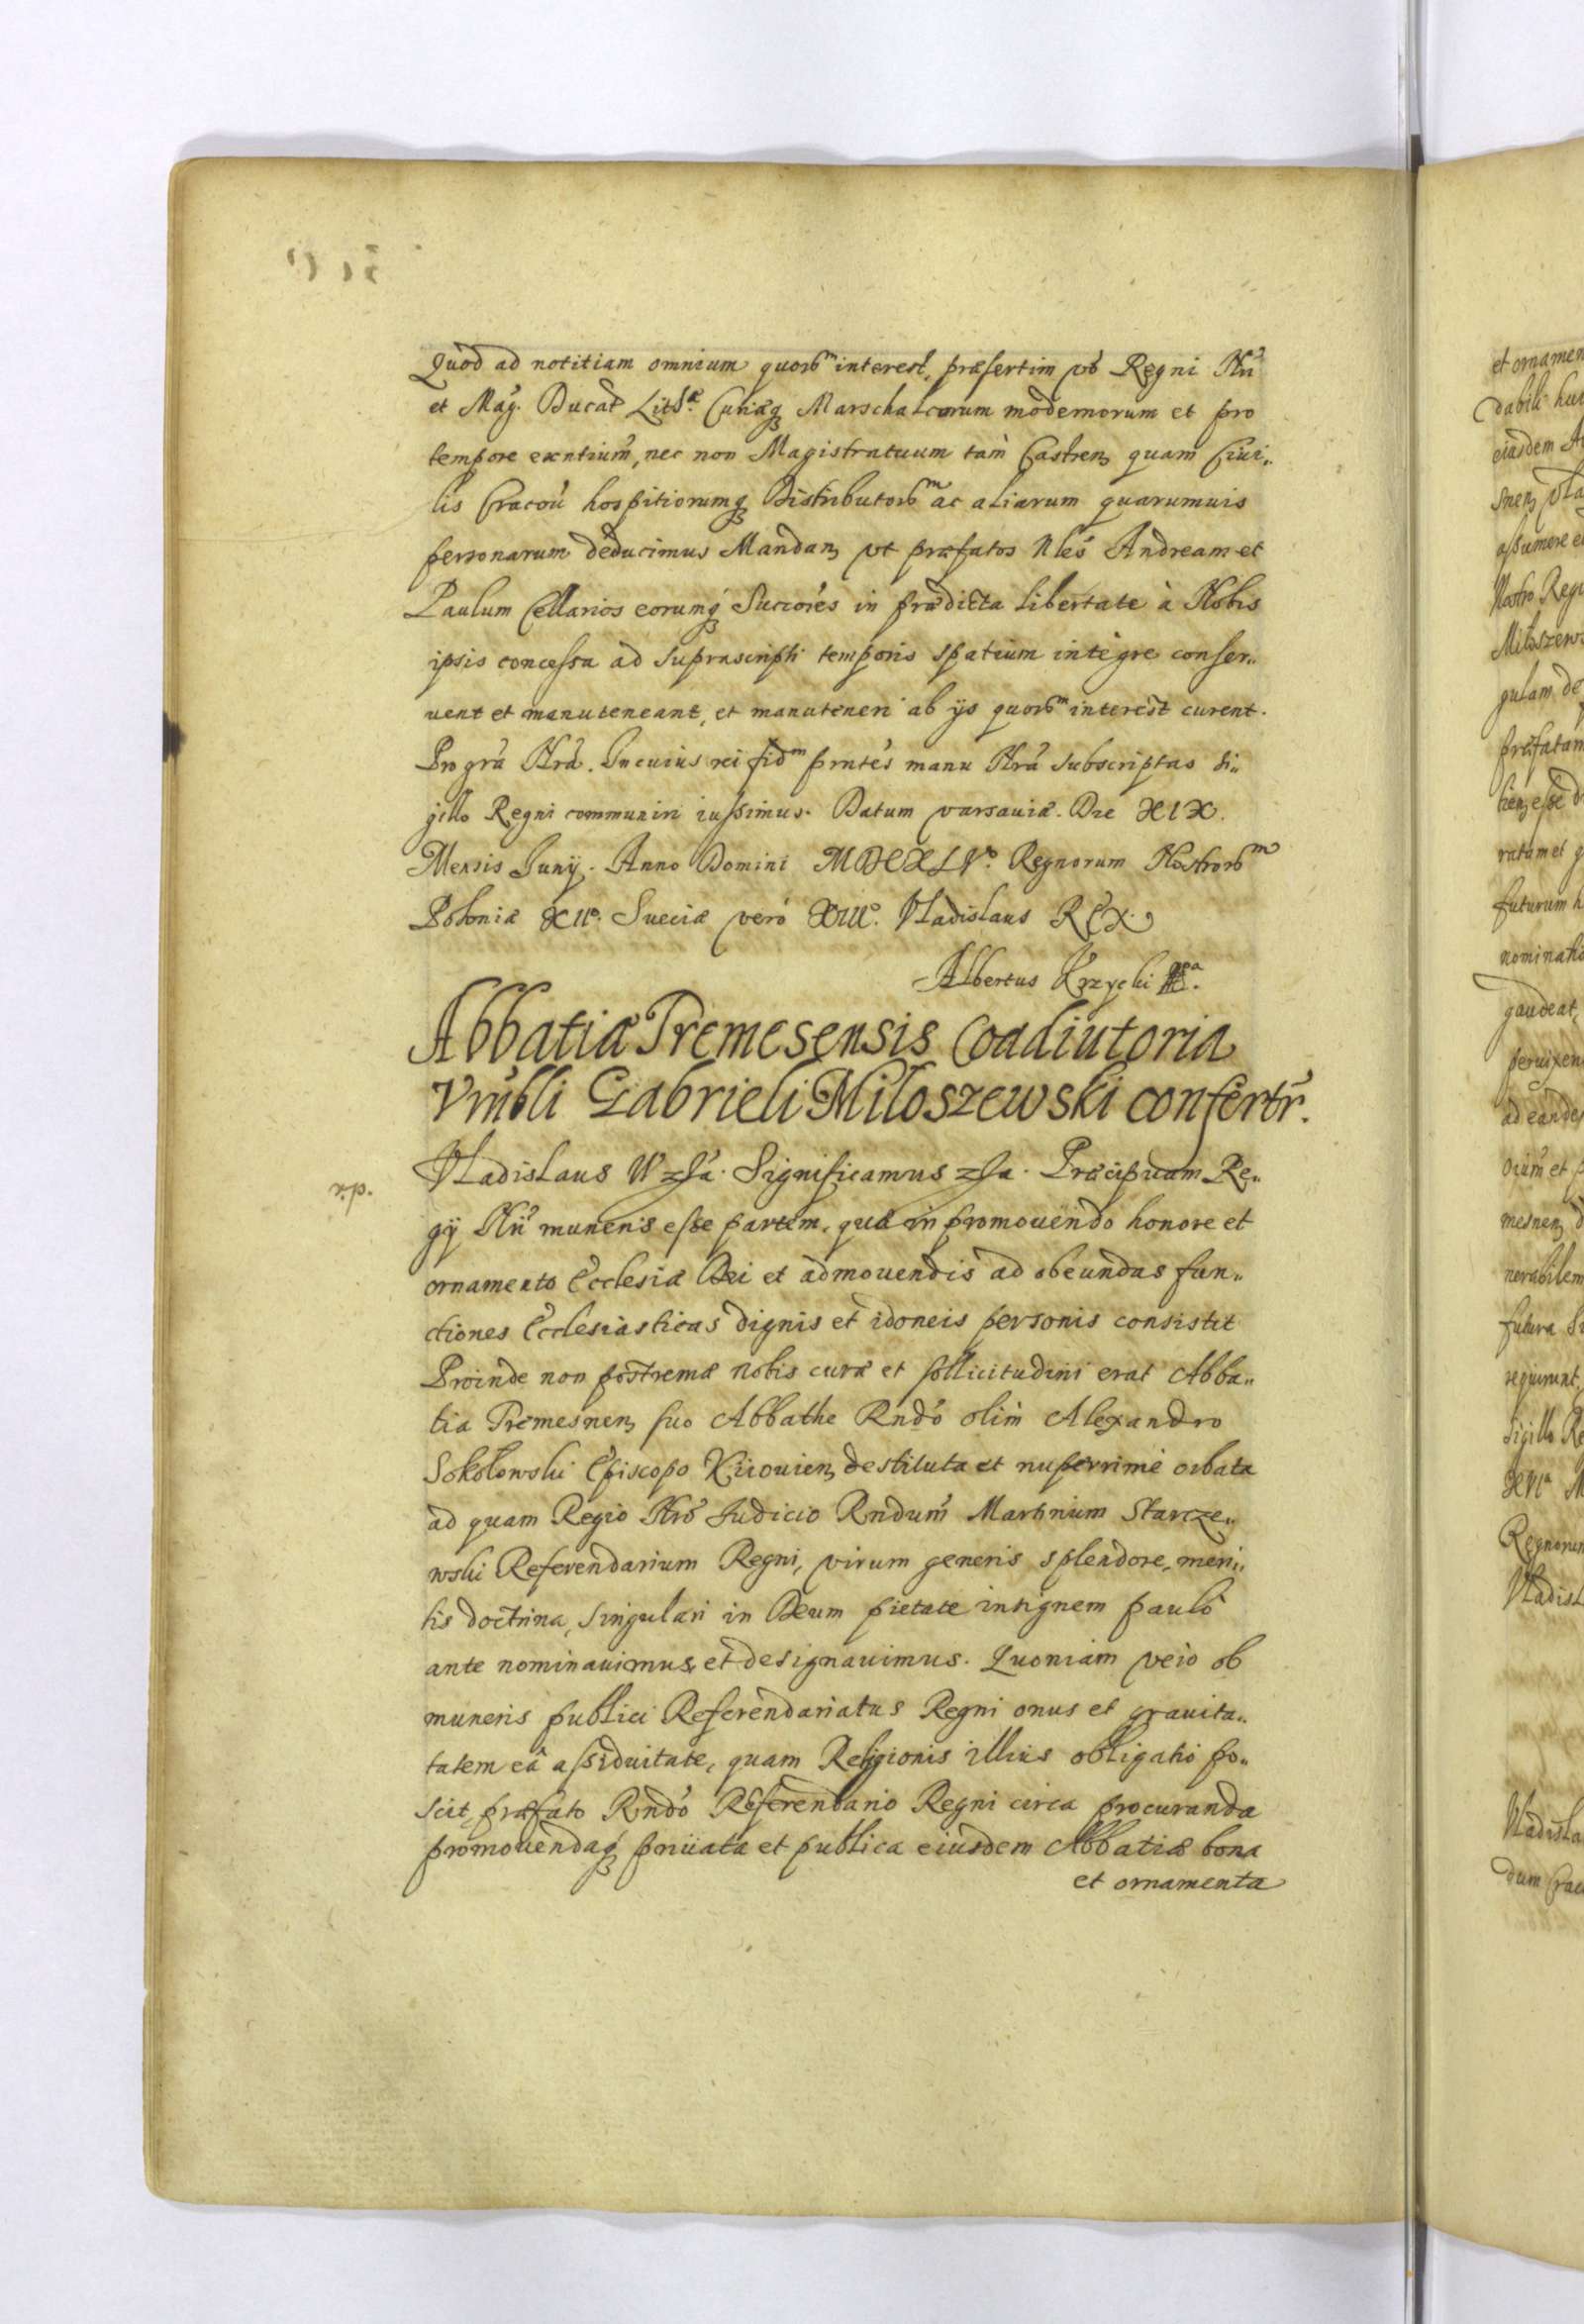 Quod ad notitiam omnium quorŭm interest, præsertim vo Regni Nri
et Mag. Ducat Litæ Curiæq Marschalcorum modernorum et pro
tempore exntium, nec non Magistratuum tam Castren quam Ciui„
lis Cracou hospitiorumq Distributorŭm ac aliarum quarumuis
personarum deducimus Mandan vt præfatos Nles Andream et
Paulum Cellarios eorunq Succores in prædicta libertate à Nobis
ipsis concessa ad suprascripti temporis spatium integre conser„
uent et manuteneant, et manuteneri ab ijs quorŭm interest curent.
Pro gra Nra. In cuius rei fidm prntes manu Nra subscriptas si„
gillo Regni communiri iussimus. Datum varsauiæ. Die XIX.
Mensis Junij. Anno Domini MDCXLVo. Regnorum Nostrorŭm
Poloniæ XIIo. Sueciæ vero XIIIo. Vladislaus REX.
Albertus Krzycki
Abbatiæ Tremesensis Coadiutoria
Vrnbli Gabrieli Miloszewski confertr.
Vladislaus IV zsa. Significamus zsa. Præcipuam Re„
gij Nri muneris esse partem, quæ in promouendo honore et
ornamento Ecclesiæ Dei et admouendis ad obeundas fun„
ctiones Ecclesiasticas dignis et idoneis personis consistit
Proinde non postremæ nobis curæ et sollicitudini erat Abba„
tia Tremesnen suo Abbathe Rndo olim Alexandro
Sokolowski Episcopo Kiiouien destituta et nuperrime orbata
ad quam Regio Nro Judicio Rndum Martinum Starcze„
wski Referendarium Regni, virum generis splendore, meri„
tis doctrina, singulari in Deum pietate insignem paulo
ante nominauimus et designauimus. Quoniam vero ob
muneris publici Referendariatus Regni onus et grauita„
tatem eâ assiduitate, quam Religionis illius obligatio po„
scit, præfato Rndo Referendario Regni circa procuranda
promouendaq priuata et publica eiusdem Abbatiæ bona
et ornamenta